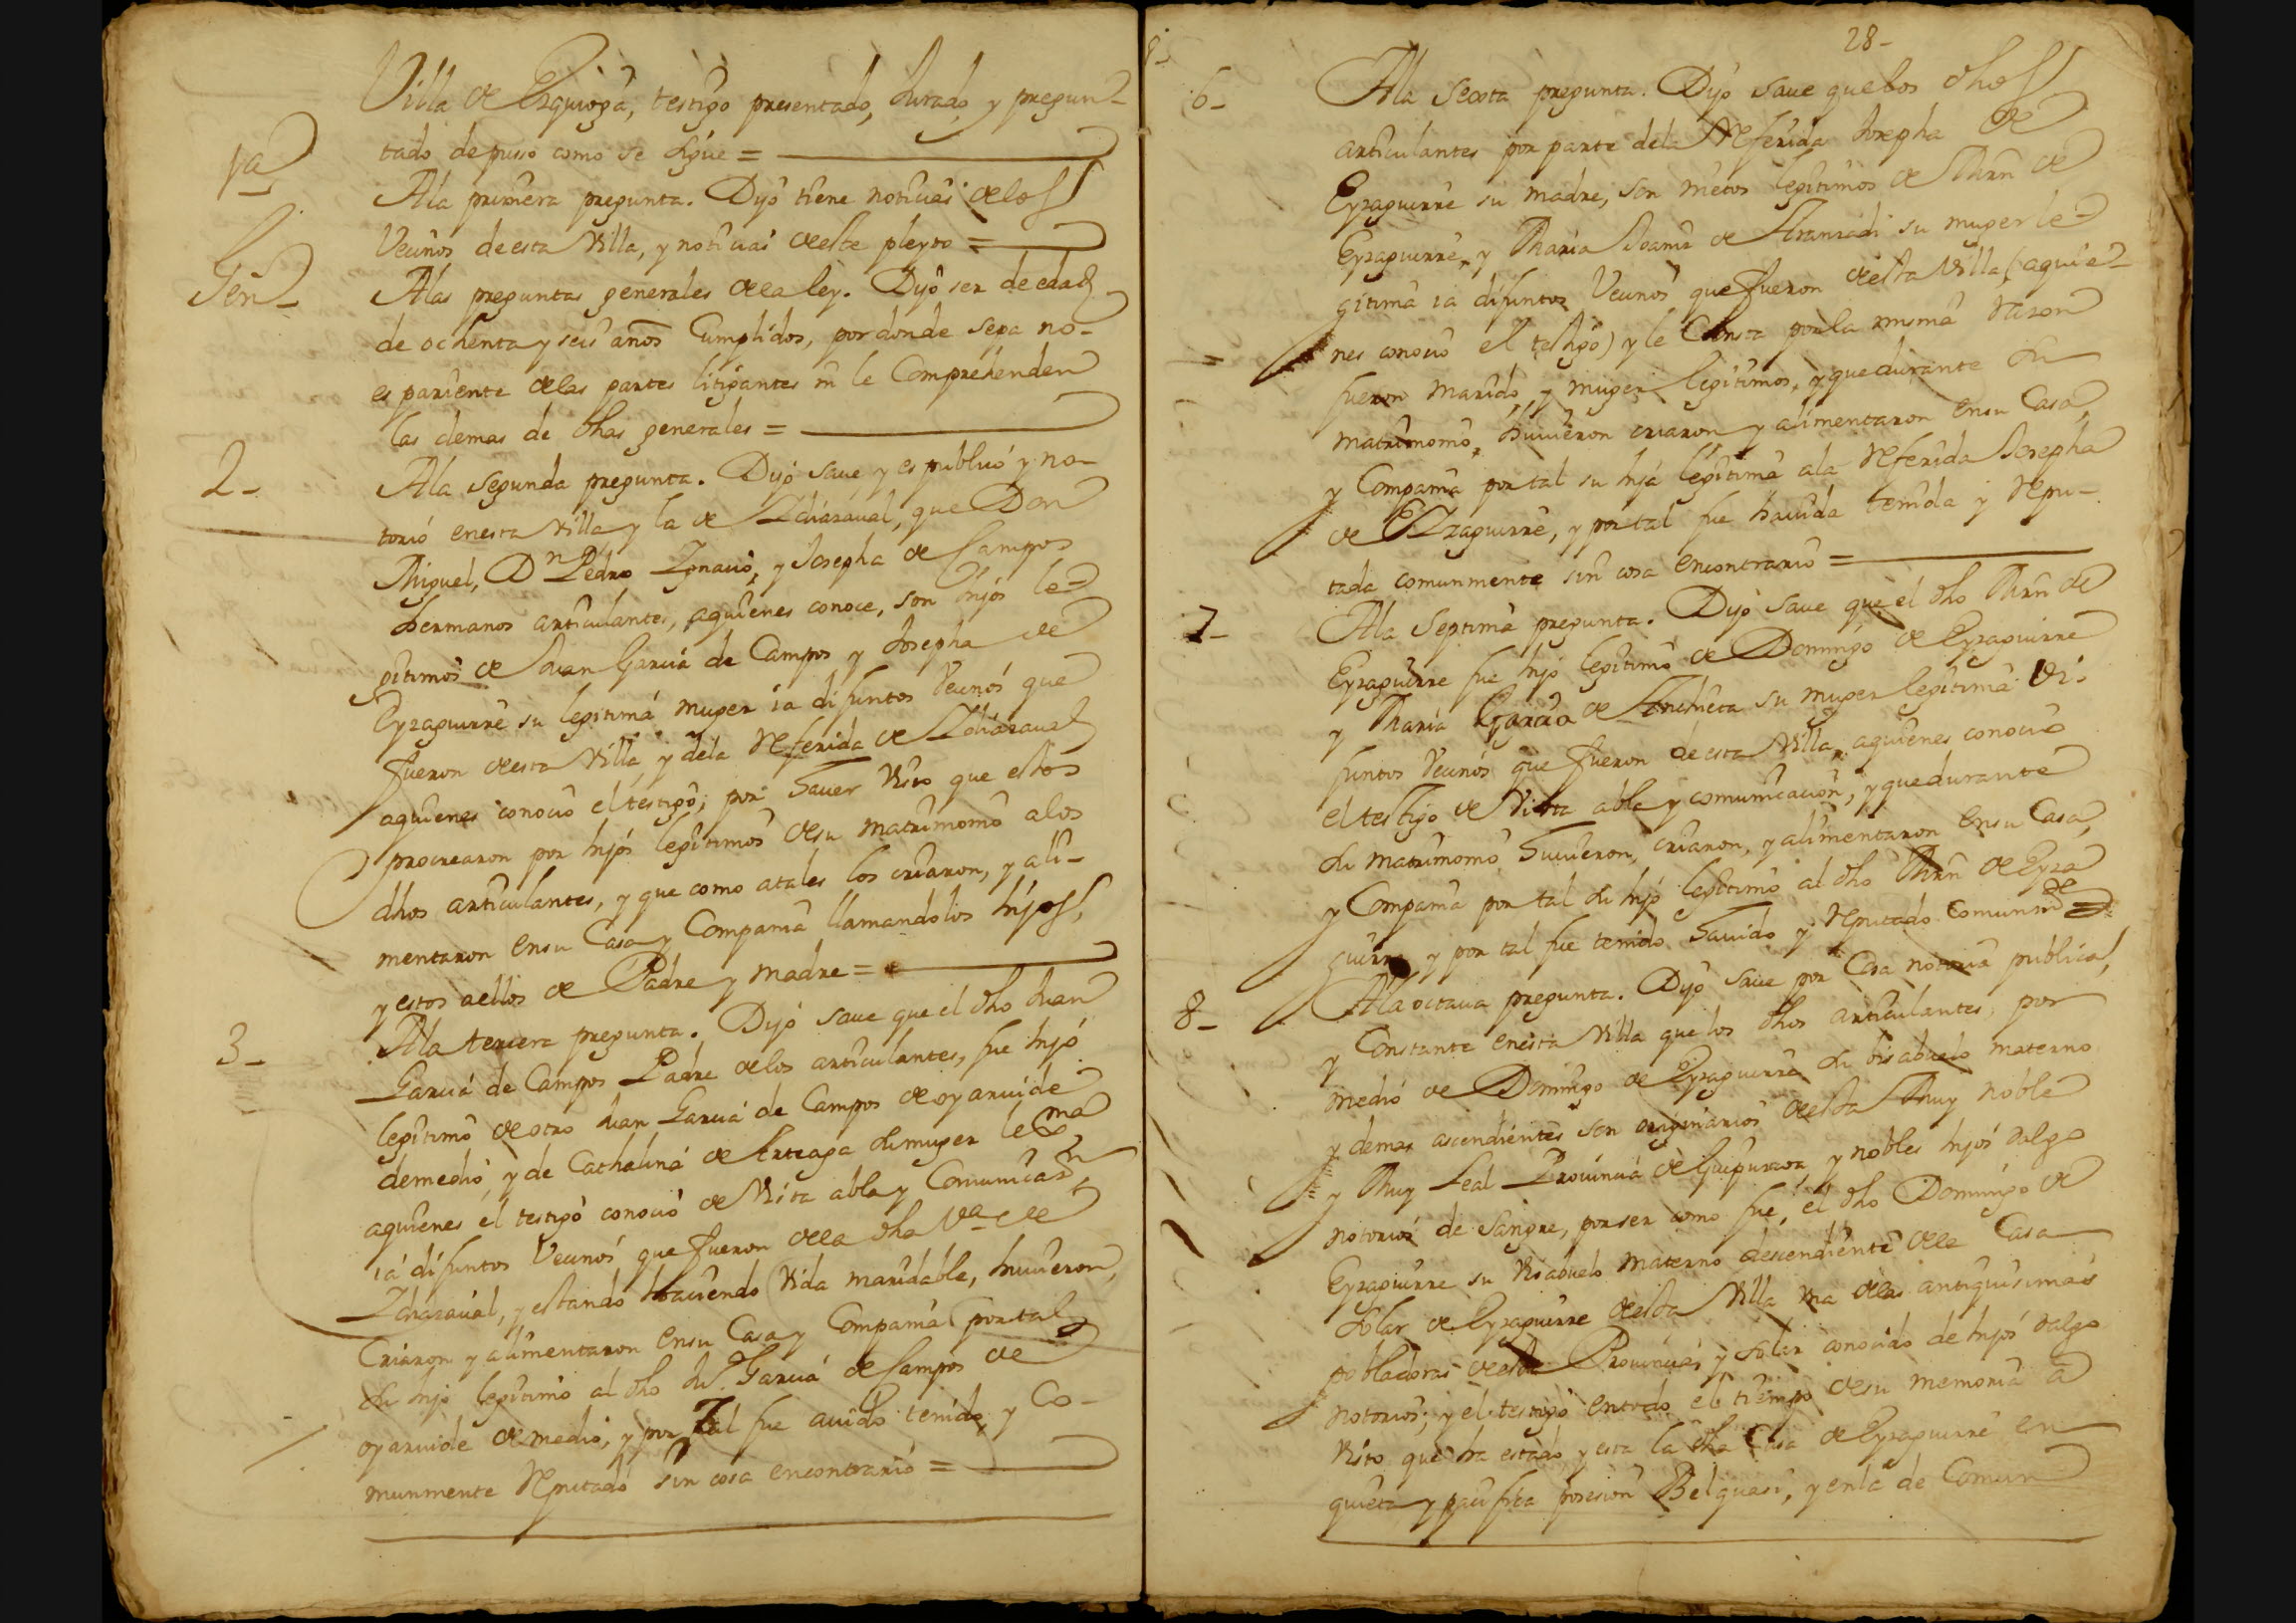 Villa de Ezquioga, testigo presentado, Jurado, y pregun-
tado depusso como se sigue =
1ª
Ala primera pregunta. Dijo tiene noticias delos
Vecinos deesta Villa, y noticias deeste pleyto =
Gen-
Alas preguntas generales dela ley. Dijo ser de edad
de ochenta y seis años Cumplidos, por donde sepa no-
es pariente delas partes litigantes ni le Comprehenden
las demas de dhas generales =
2-
Ala segunda pregunta. Dijo saue y es publico y no-
torio enesta Villa y la de Ydiazaual, que Don
Miguel, Dn Pedro Ygnacio, y Josepha de Campos
hermanos articulantes, aquienes conoce, son hijos le-
gitimos de Juan Garcia de Campos y Josepha de
Eyzaguirre su legitima muger ia difuntos Vecinos que
fueron deesta Villa, y dela Referida de Ydiazaual
aquienes conocio el testigo, por hauer Visto que estos
procrearon por hijos legitimos desu matrimonio alos
dhos articulantes, y que como atales los criaron, y ali-
mentaron ensu Casa y Compania llamandolos hijos,
y estos aellos de Padre y madre =
3-
Ala tercera pregunta. Dijo saue que el dho Juan
Garcia de Campos Padre delos articulantes, fue hijo
legitimo deotro Juan Garcia de Campos de oyaruide
demedio, y de Cathalina de Arteaga su muger lexma
aquienes el testigo conocio de Vista abla y Comunicazn
ia difuntos Vecinos que fueron dela dha Va de
Ydiazaual, y estando haciendo Vida maridable, huuieron,
Criaron y alimentaron ensu Casa y Compania por tal
su hijo legitimo al dho Ju. Garcia de Campos de
oyaruide demedio, y por tal fue auido tenido, y Co-
munmente Reputado sin cosa encontrario =
28-
6-
Ala Sexta pregunta. Dijo saue quelos dhos
articulantes por parte dela Referida Josepha de
Eyzaguirre su madre, son nietos legitimos de Mrn de
Eyzaguirre, y Maria Joana de Aranzadi su muger le-
gitima ia difuntos Vecinos que fueron deesta Villa, (aquie-
nes conocio el testigo) y le Consta porla misma Razon
fueron marido, y muger legitimos, y que durante su
matrimonio, huuieron criaron y alimentaron ensu Casa,
y Compania por tal su hija legitima ala Referida Josepha
de Eyzaguirre, y por tal fue hauida tenida y Repu-
tada comunmente sin cosa encontrario =
7-
Ala Septima pregunta. Dijo saue que el dho Mrn de
Eyzaguirre fue hijo legitimo de Domingo de Eyzaguirre
y Maria Garcia de Anchieta su muger legitima di-
funtos Vecinos que fueron deesta Villa, aquienes conocio
el testigo de Vista abla y comunicacion, y que durante
su matrimonio huuieron, criaron, y alimentaron ensu Casa,
y Compania por tal su hijo legitimo al dho Mrn de Eyza
guirre y por tal fue tenido hauido y Reputado comunmte
8-
Ala octaua pregunta. Dijo saue por Cosa notoria publica,
y Constante enesta Villa que los dhos articulantes, por
medio de Domingo de Eyzaguirre su bisabuelo materno
y demas ascendientes son originarios deesta Muy noble
y Muy Leal Prouincia de Guipuzcoa, y nobles hijos dalgo
notorios de Sangre, por ser como fue, el dho Domingo de
Eyzaguirre su Visabuelo materno descendiente dela Casa
Solar de Eyzaguirre deesta Villa Vna delas antiquisimas
pobladoras deesta Prouincia, y solar conocido de hijos dalgo
notorios; y el testigo entodo el tiempo desu memoria a
Visto que ha estado y esta la dha Casa de Eyzaguirre en
quieta y pacifica posesion Belquasi, y enla de Comun